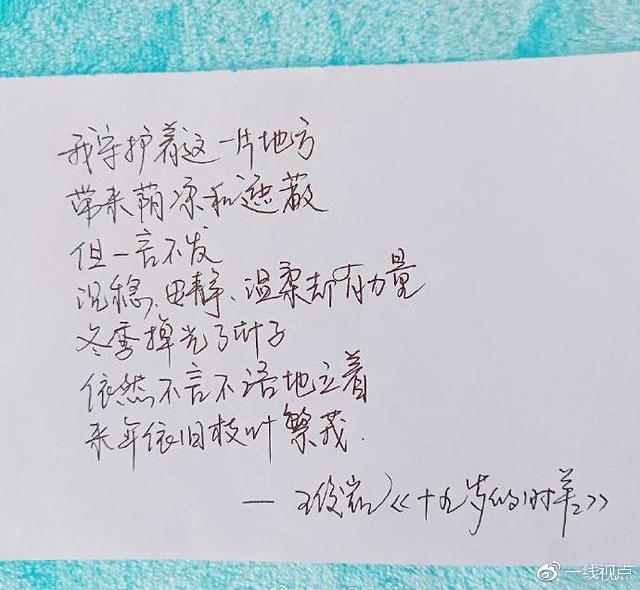 我守护着这一片地方
带来荫凉和遮蔽
但一言不发
沉稳、恬静、温柔却有力量
冬季掉光了叶子
依然不言不语地立着
来年依旧枝叶繁茂.
— 王俊岩《十九岁的时差》
一线视点